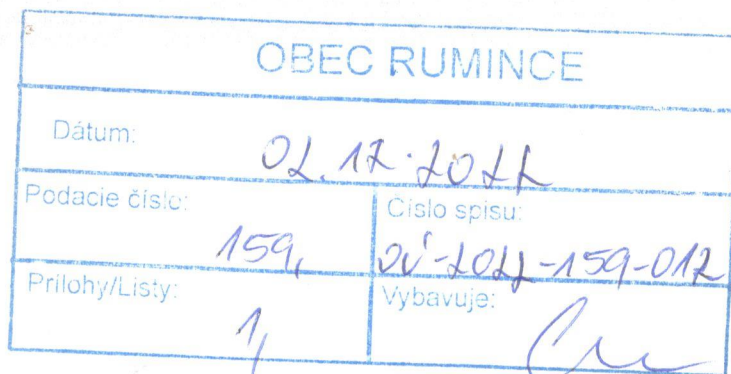 OBEC RUMINCE
Dátum: 02.12.2022
Podacie číslo: 159,
Číslo spisu: OÚ-2022-159-012
Prílohy/Listy: 1,
Vybavuje: